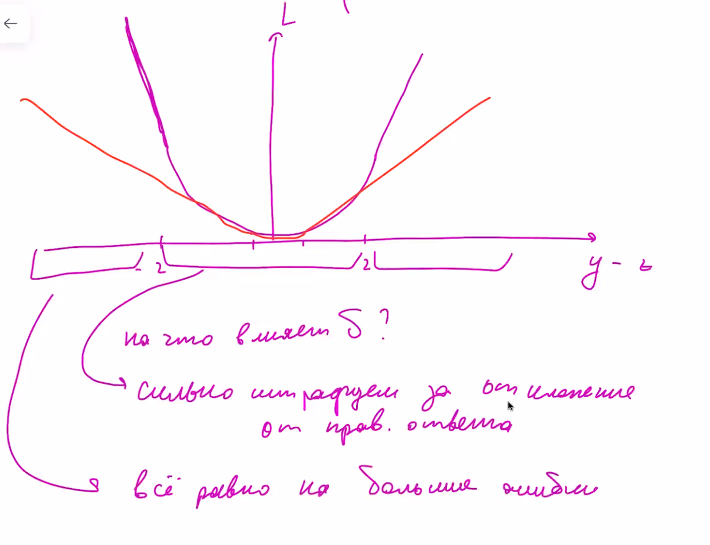 L
- 2
2
y - z
на что влияет δ ?
сильно штрафуем за отклонение
от прав. ответа
всё равно на большие ошибки